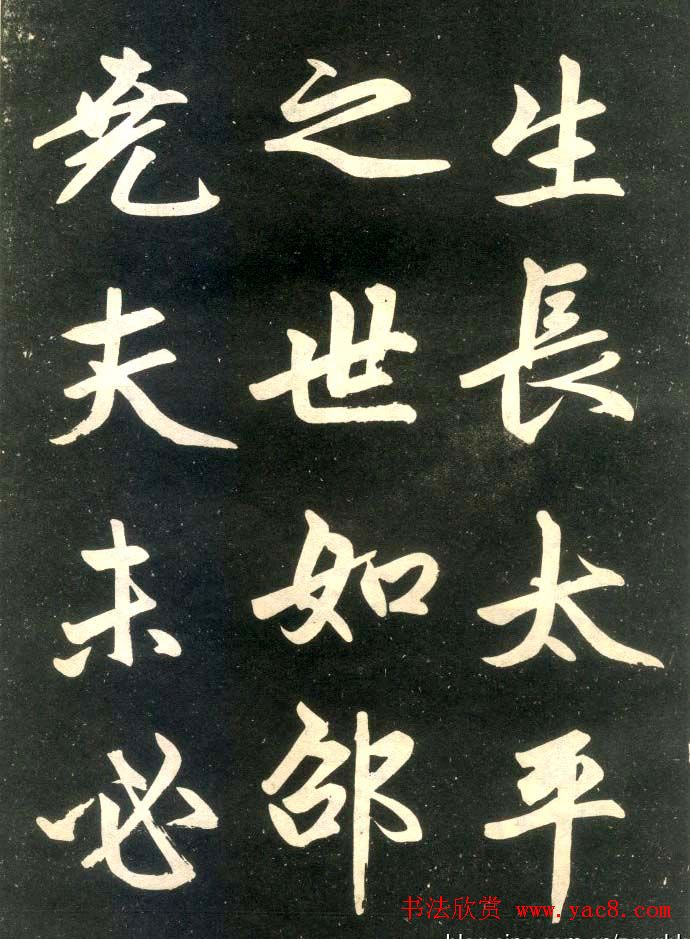 生長太平
之世如邵
堯夫未必
书法欣赏 www.yac8.com